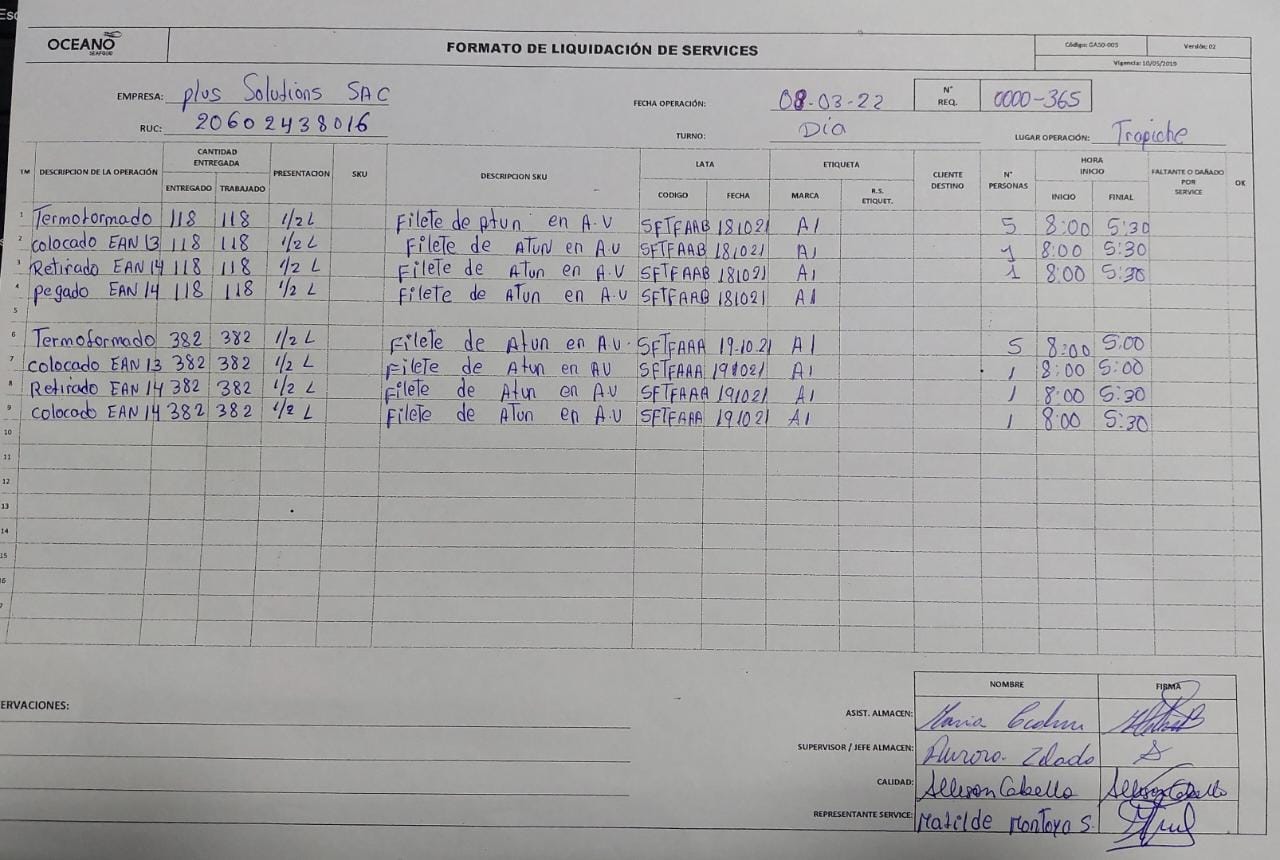 Esc
OCEANO
SEAFOOD
FORMATO DE LIQUIDACIÓN DE SERVICES
Código: GASO-005
Versión: 02
Vigencia: 10/05/2019
EMPRESA: plus Solutions SAC
FECHA OPERACIÓN: 08-03-22
N° REQ. 0000-365
RUC: 20602438016
TURNO: Día
LUGAR OPERACIÓN: Tropiche
TM DESCRIPCION DE LA OPERACIÓN CANTIDAD ENTREGADA PRESENTACION SKU DESCRIPCION SKU LATA ETIQUETA CLIENTE DESTINO N° PERSONAS HORA INICIO FALTANTE O DAÑADO POR SERVICE OK
ENTREGADO TRABAJADO CODIGO FECHA MARCA R.S. ETIQUET. INICIO FINIAL
1 Termoformado 118 118 1/2 L Filete de Atun en A.U SFTFAAB 181021 A1 5 8:00 5:30
2 colocado EAN 13 118 118 1/2 L Filete de ATUN en A.U SFTFAAB 181021 A1 1 8:00 5:30
3 Retirado EAN 14 118 118 1/2 L Filete de ATun en A.U SFTFAAB 181021 A1 1 8:00 5:30
4 pegado EAN 14 118 118 1/2 L Filete de ATun en A.U SFTFAAB 181021 A1
5
6 Termoformado 382 382 1/2 L Filete de Atun en A.U. SFTFAAA 19-10.21 A1 5 8:00 5:00
7 colocado EAN 13 382 382 1/2 L Filete de Atun en AU SFTFAAA 191021 A1 1 8:00 5:00
8 Retirado EAN 14 382 382 1/2 L Filete de Atun en AU SFTFAAA 191021 A1 1 8:00 5:30
9 colocado EAN 14 382 382 1/2 L Filete de ATun en A.U SFTFAAA 191021 A1 1 8:00 5:30
10
11
12
13
14
15
6
7
ERVACIONES:
NOMBRE FIRMA
ASIST. ALMACEN: Maria
SUPERVISOR / JEFE ALMACEN: Aurora
CALIDAD: Allison Cabello Allison Cabello
REPRESENTANTE SERVICE: Matilde Montoya S.